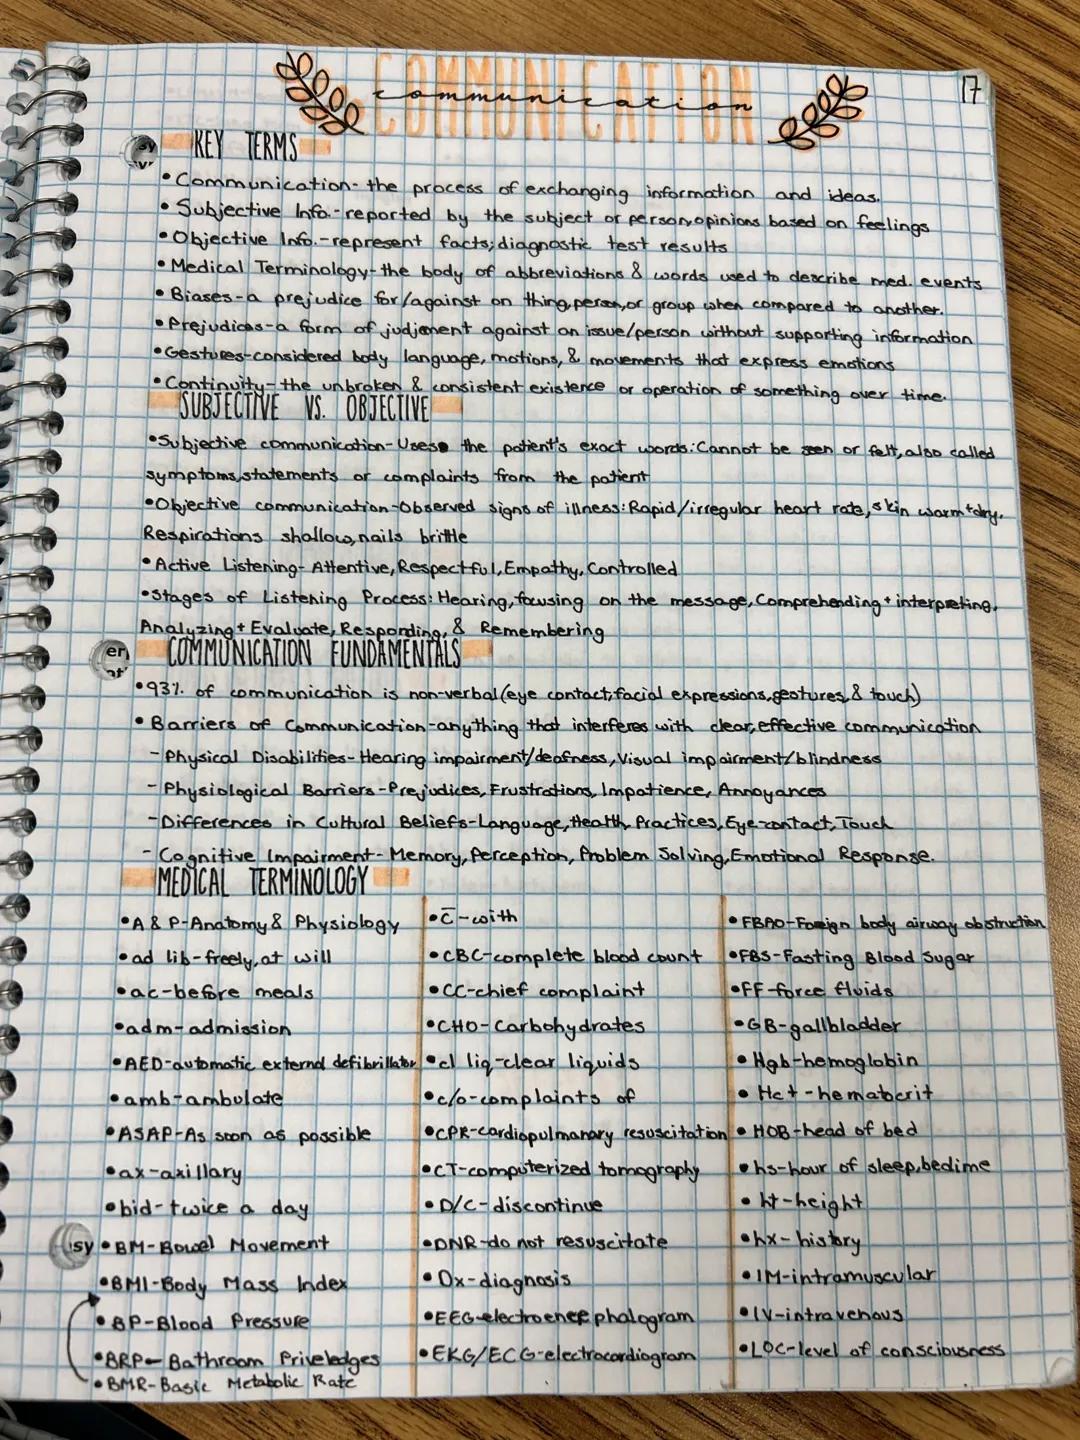 COMMUNICATION
communication
17
KEY TERMS
• Communication- the process of exchanging information and ideas.
• Subjective Info.-reported by the subject or person,opinions based on feelings
• Objective Info.-represent facts;diagnostic test results
• Medical Terminology-the body of abbreviations & words used to describe med. events
• Biases-a prejudice for/against on thing,person,or group when compared to another.
• Prejudices-a form of judjement against an issue/person without supporting information
• Gestures-considered body language, motions, & movements that express emotions
• Continuity-the unbroken & consistent existence or operation of something over time.
SUBJECTIVE VS. OBJECTIVE
• Subjective communication-Uses the patient's exact words:Cannot be seen or felt,also called
symptoms,statements or complaints from the patient
• Objective communication-Observed signs of illness:Rapid/irregular heart rate,skin warm+dry.
Respirations shallow,nails brittle
• Active Listening- Attentive,Respectful,Empathy,Controlled
• Stages of Listening Process: Hearing,focusing on the message,Comprehending + interpreting,
Analyzing + Evaluate, Responding, & Remembering
er
COMMUNICATION FUNDAMENTALS
• 93% of communication is non-verbal(eye contact,facial expressions,gestures,& touch)
• Barriers of Communication-anything that interferes with clear,effective communication
- Physical Disabilities- Hearing impairment/deafness,Visual impairment/blindness
- Physiological Barriers-Prejudices, Frustrations, Impatience, Annoyances
- Differences in Cultural Beliefs-Language,Health Practices,Eye-contact,Touch
- Cognitive Impairment- Memory,Perception,Problem Solving,Emotional Response.
MEDICAL TERMINOLOGY
• A & P-Anatomy & Physiology
• ad lib-freely,at will
• ac-before meals
• adm-admission
• AED-automatic external defibrillator
• amb-ambulate
• ASAP-As soon as possible
• ax-axillary
• bid-twice a day
sy
• BM-Bowel Movement
• BMI-Body Mass Index
• BP-Blood Pressure
• BRP-Bathroom Priveledges
• BMR-Basic Metabolic Rate
• c̄-with
• CBC-complete blood count
• CC-chief complaint
• CHO-Carbohydrates
• cl liq-clear liquids
• c/o-complaints of
• CPR-cardiopulmonary resuscitation
• CT-computerized tomography
• D/C-discontinue
• DNR-do not resuscitate
• Dx-diagnosis
• EEG-electroencephalogram
• EKG/ECG-electrocardiogram
• FBAO-Foreign body airway obstruction
• FBS-Fasting Blood Sugar
• FF-force fluids
• GB-gallbladder
• Hgb-hemoglobin
• Hct-hematocrit
• HOB-head of bed
• hs-hour of sleep,bedime
• ht-height
• hx-history
• IM-intramuscular
• IV-intravenous
• LOC-level of consciousness